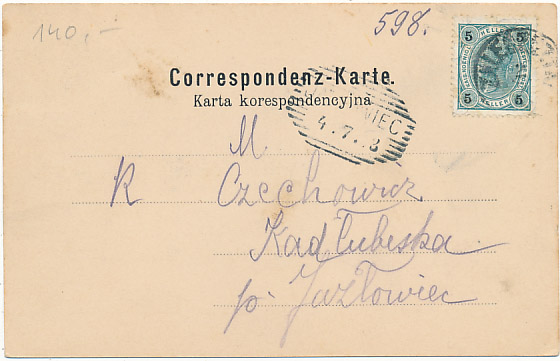 140,-
598.
5 HELLER 5
5 HELLER 5
Correspondenz-Karte.
Karta korespondencyjna
4.7.3
M.
K Czechowicz
Kadłubiska
p. Jazłowiec